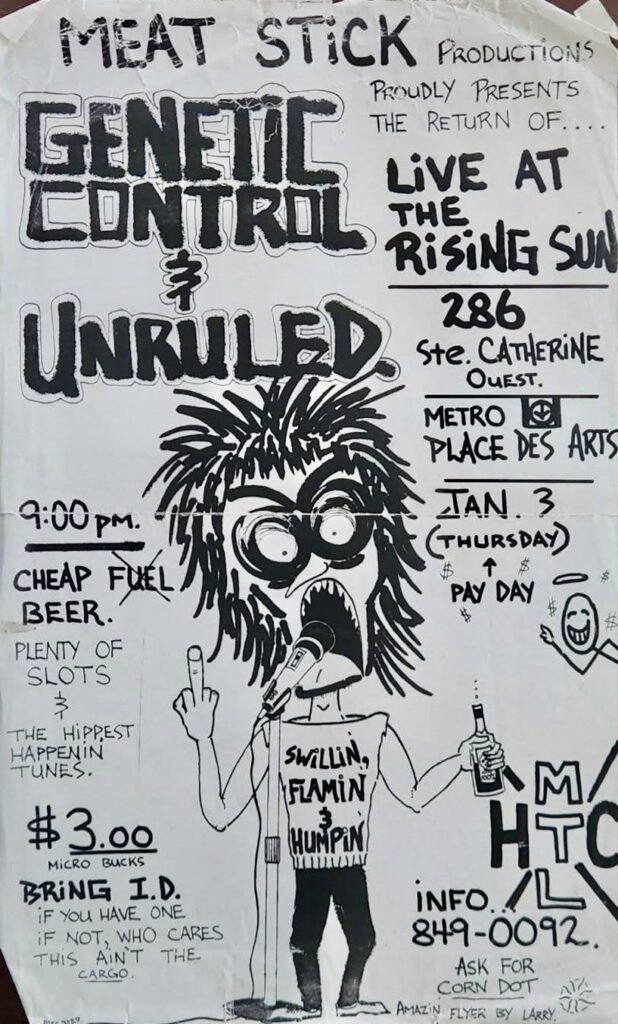 MEAT STICK PRODUCTIONS
PROUDLY PRESENTS
THE RETURN OF....
GENETIC
CONTROL
&
UNRULED.
LIVE AT
THE
RISING SUN
286
Ste. CATHERINE
OUEST.
METRO
PLACE DES ARTS
JAN. 3
(THURSDAY)
PAY DAY
9:00 PM.
CHEAP FUEL
BEER.
PLENTY OF
SLOTS
&
THE HIPPEST
HAPPENIN
TUNES.
$3.00
MICRO BUCKS
BRING I.D.
IF YOU HAVE ONE
IF NOT, WHO CARES
THIS AIN'T THE
CARGO.
SWILLIN,
FLAMIN
&
HUMPIN'
MTL
HTC
INFO...
849-0092.
ASK FOR
CORN DOT
AMAZIN FLYER BY LARRY.